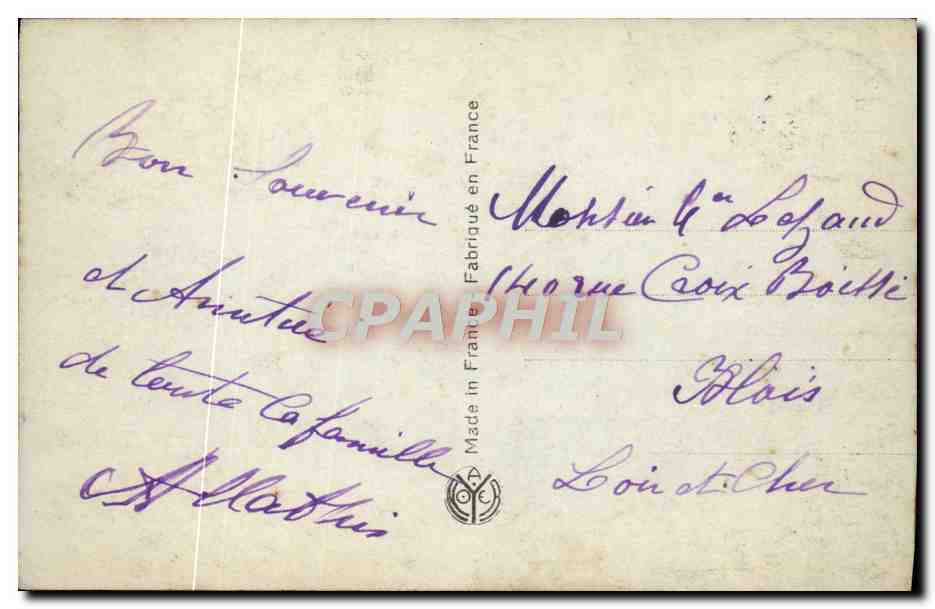 Bon Souvenir
et Amitié
de toute la famille
A Mathis
Made in France Fabriqué en France
CPAPHIL
Monsieur
rue Croix Boissé
Blois
Loir et Cher